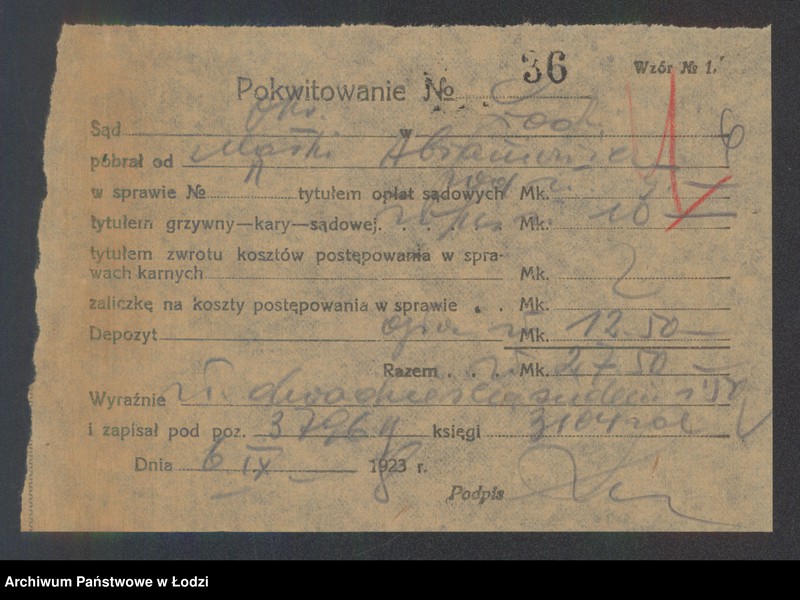 36
Wzór № 1.
Pokwitowanie №
Sąd Okr. w Łodzi
pobrał od Maszki Abramowicza
w sprawie № tytułem opłat sądowych Mk. 5.—
tytułem grzywny—kary—sądowej. Mk. 10 —
tytułem zwrotu kosztów postępowania w spra-
wach karnych Mk.
zaliczkę na koszty postępowania w sprawie . . Mk.
Depozyt Mk. 12.50 —
Razem . . . Mk. 27.50
Wyraźnie zł. dwadzieścia siedem
i zapisał pod poz. 37964 księgi
Dnia 6 IX 1923 r.
Podpis
Archiwum Państwowe w Łodzi